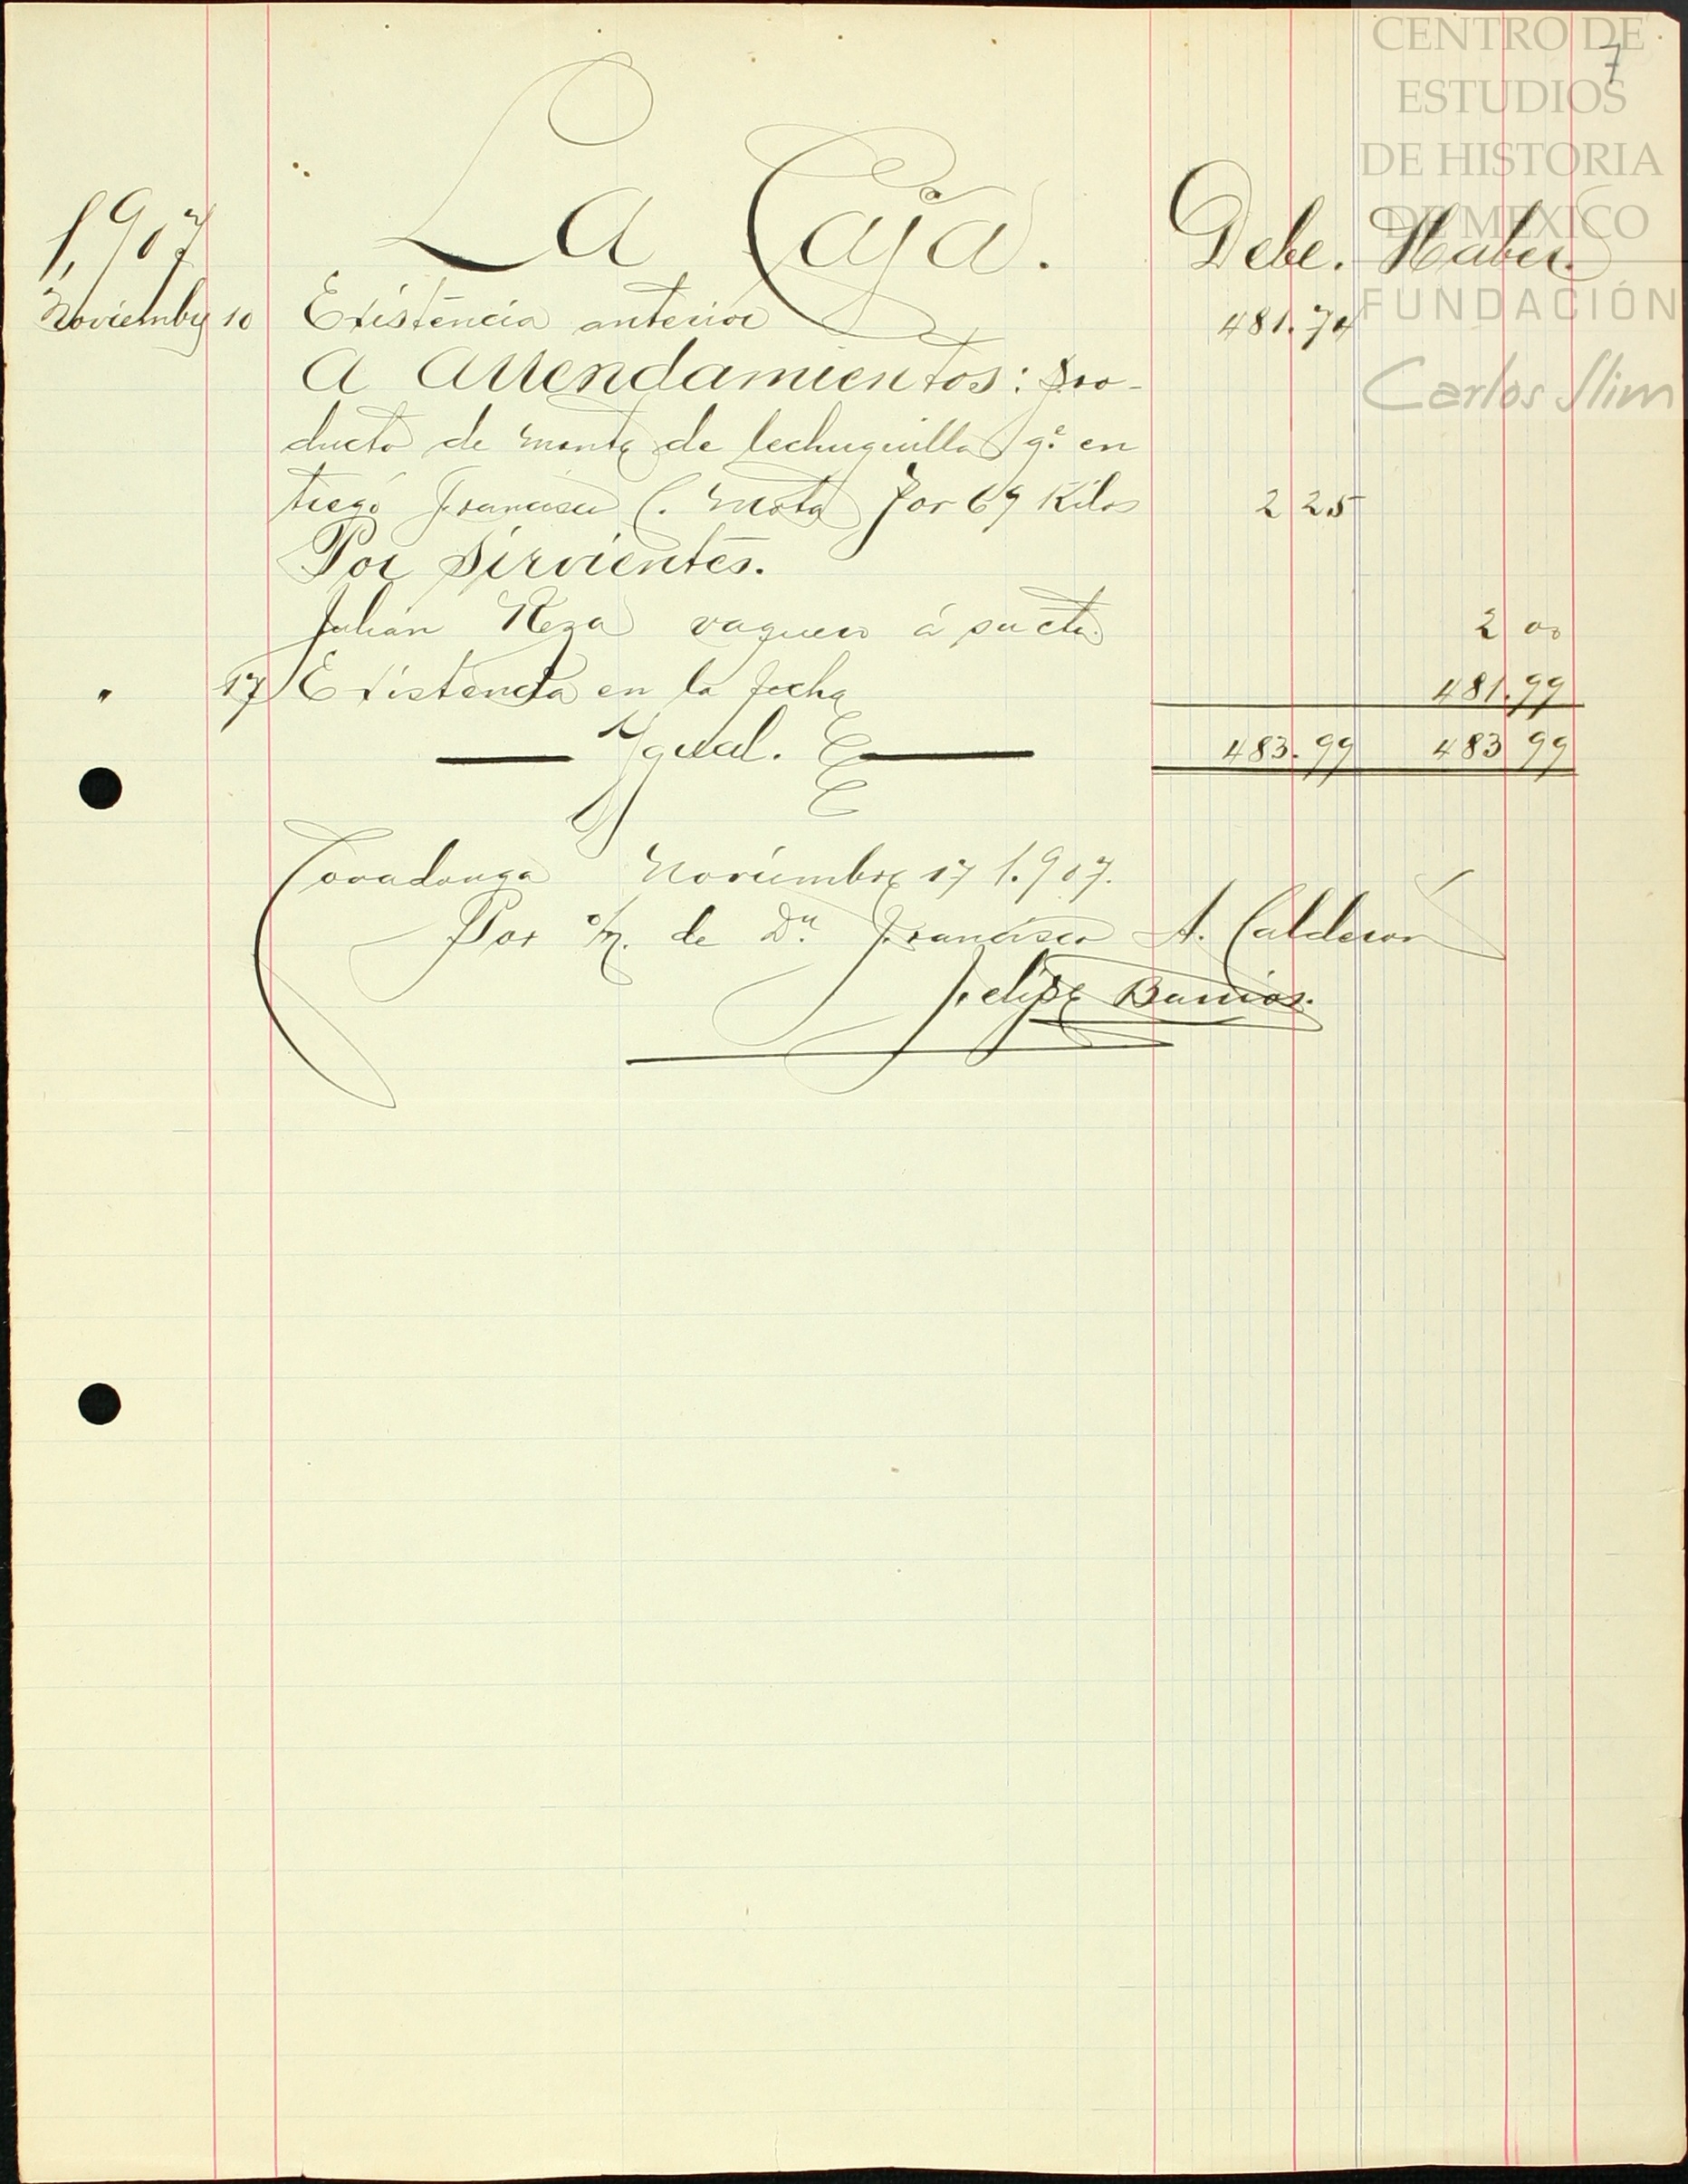 7
CENTRO DE
ESTUDIOS
DE HISTORIA
DE MEXICO
FUNDACIÓN
Carlos Slim
1,907 La Caja. Debe. Haber.
Noviembre 10 Existencia anterior 481.74
A Arrendamientos: Pro-
ducto de monte de lechuguilla q.e en
tregó Francisco C. Mota por 69 Kilos 2 25
Por Sirvientes.
Julian Reza vaquero á su cta. 2 00
" 17 Existencia en la fecha 481.99
Ygual. 483.99 483 99
Covadonga Noviembre 17 1.907.
Por o/m. de Dn. Francisco A. Calderon
Felipe Barrios.